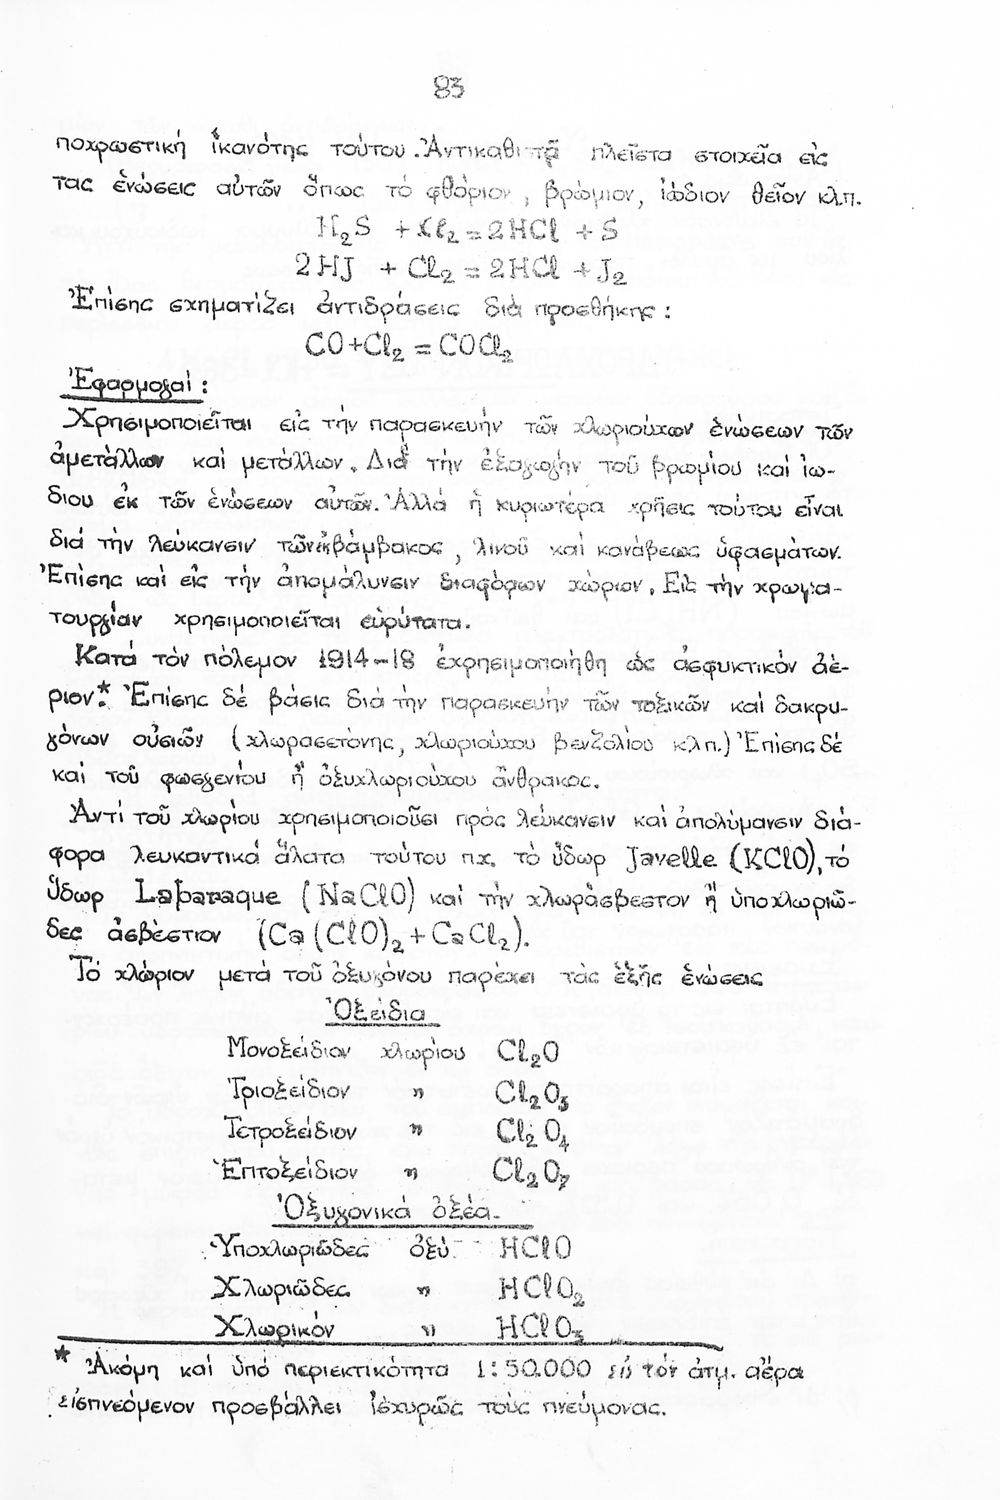 83
ποχρωστική ἱκανότης τούτου. Ἀντικαθιστᾷ πλεῖστα στοιχεῖα εἰς
τας ἑνώσεις αὐτῶν ὅπως τό φθόριον, βρώμιον, ἰώδιον θεῖον κλπ.
H₂S + Cl₂ = 2HCl + S
2HJ + Cl₂ = 2HCl + J₂
Ἐπίσης σχηματίζει ἀντιδράσεις διά προσθήκης :
CO + Cl₂ = COCl₂
Ἐφαρμογαί :
Χρησιμοποιεῖται εἰς τήν παρασκευήν τῶν χλωριούχων ἑνώσεων τῶν
ἀμετάλλων καί μετάλλων. Διά τήν ἐξαγωγήν τοῦ βρωμίου καί ἰω-
διου ἐκ τῶν ἑνώσεων αὐτῶν. Ἀλλά ἡ κυριωτέρα χρῆσις τούτου εἶναι
διά τήν λεύκανσιν τῶν ἐκ βάμβακος, λινοῦ καί κανάβεως ὑφασμάτων.
Ἐπίσης καί εἰς τήν ἀπομάλυνσιν διαφόρων χώρων. Εἰς τήν χρωμα-
τουργίαν χρησιμοποιεῖται εὐρύτατα.
Κατά τόν πόλεμον 1914-18 ἐχρησιμοποιήθη ὡς ἀσφυκτικόν ἀέ-
ριον.* Ἐπίσης δέ βάσις διά τήν παρασκευήν τῶν τοξικῶν καί δακρυ-
γόνων οὐσιῶν (χλωρασετόνης, χλωριούχου βενζολίου κλπ.) Ἐπίσης δέ
καί τοῦ φωσγενίου ἤ ὀξυχλωριούχου ἄνθρακος.
Ἀντί τοῦ χλωρίου χρησιμοποιοῦσι πρός λεύκανσιν καί ἀπολύμανσιν διά-
φορα λευκαντικά ἅλατα τούτου πχ. τό ὕδωρ Javelle (KClO), τό
ὕδωρ Labaraque (NaClO) καί τήν χλωράσβεστον ἤ ὑποχλωριῶ-
δες ἀσβέστιον (Ca(ClO)₂ + CaCl₂).
Τό χλώριον μετά τοῦ ὀξυγόνου παρέχει τάς ἑξῆς ἑνώσεις
Ὀξείδια
Μονοξείδιον χλωρίου Cl₂O
Τριοξείδιον " Cl₂O₃
Τετροξείδιον " Cl₂O₄
Ἑπτοξείδιον " Cl₂O₇
Ὀξυγονικά ὀξέα.
Ὑποχλωριῶδες ὀξύ HClO
Χλωριῶδες " HClO₂
Χλωρικόν " HClO₃
* Ἀκόμη καί ὑπό περιεκτικότητα 1:50.000 εἰς τόν ἀτμ. αἔρα
εἰσπνεόμενον προσβάλλει ἰσχυρῶς τούς πνεύμονας.